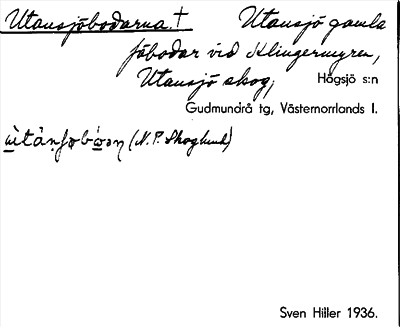 Utansjöbodarna. † Utansjö gamla
fäbodar vid Klingermyren,
Utansjö skog; Högsjö s:n
Gudmundrå tg, Västernorrlands l.
(N. P. Skoglund)
Sven Hiller 1936.